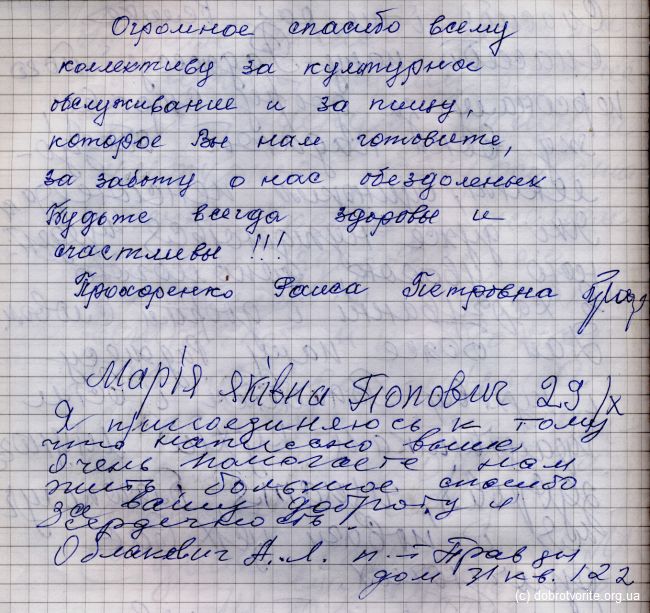 Огромное спасибо всему
коллективу за культурное
обслуживание и за пищу,
которое Вы нам готовите,
за заботу о нас обездоленых
Будьте всегда здоровы и
счастливы !!!
Прохоренко Раиса Петровна
Марія Яківна Попович 29/X
Я присоединяюсь к тому
что написано выше,
Очень помогаете нам
жить большое спасибо
за вашу доброту и
сердечность.
Облакевич А. Л. п-т Правды
дом 31 кв. 122
(c) dobrotvorite.org.ua